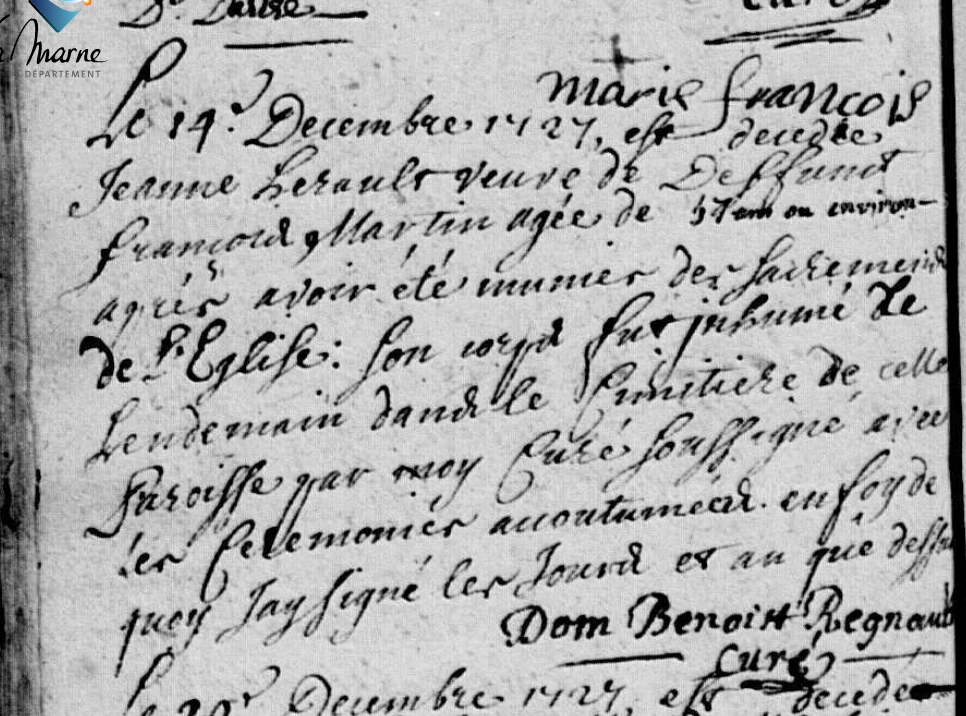 curé
Marne
DÉPARTEMENT
marie francois
Le 14e. Decembre 1727, est decedee
Jeanne Lerault veuve de Deffunt
francois Martin agée de ans ou environ
aprés avoir été munies des sacremens
de l'Eglise: son corps fut inhumé Le
Lendemain dans le Cimitiere de cette
Paroisse par moy Curé soussigné avec
les Ceremonies accoutumées. en foy de
quoy Jay signé les Jours et an que dessus
Dom Benoist Regnault
curé
Le Decembre 1727, est decede